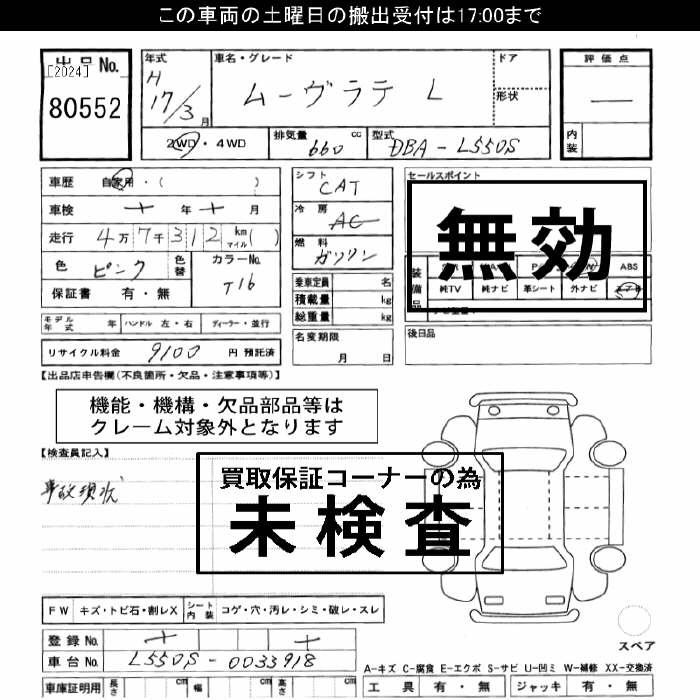 この車両の土曜日の搬出受付は17:00まで
出品No.
[2024]
80552
年式
H
17/3月
車名・グレード
ムーヴラテ L
ドア
形状
評価点
内装
2WD・4WD
排気量 660 cc
型式 DBA-L550S
車歴 自家用・( )
車検 年 月
走行 4万7千312 km マイル( )
色 ピンク 色替 カラーNo. T16
保証書 有・無
シフト
CAT
冷房
AC
燃料
ガソリン
乗車定員 名
積載量 kg
総重量 kg
名変期限
月 日
セールスポイント
無効
装備品
ABS
純TV 純ナビ 革シート 外ナビ
後日品
モデル年式 年 ハンドル 左・右 ディーラー・並行
リサイクル料金 9100 円 預託済
【出品店申告欄(不良箇所・欠品・注意事項等)】
機能・機構・欠品部品等は
クレーム対象外となります
【検査員記入】
事故現状
買取保証コーナーの為
未検査
FW キズ・トビ石・割レX シート内装 コゲ・穴・汚レ・シミ・破レ・スレ
登録No.
車台No. L550S-0033918
スペア
A-キズ C-腐食 E-エクボ S-サビ U-凹ミ W-補修 XX-交換済
車庫証明用 長さ cm 幅 cm 高さ cm
工具 有・無 ジャッキ 有・無